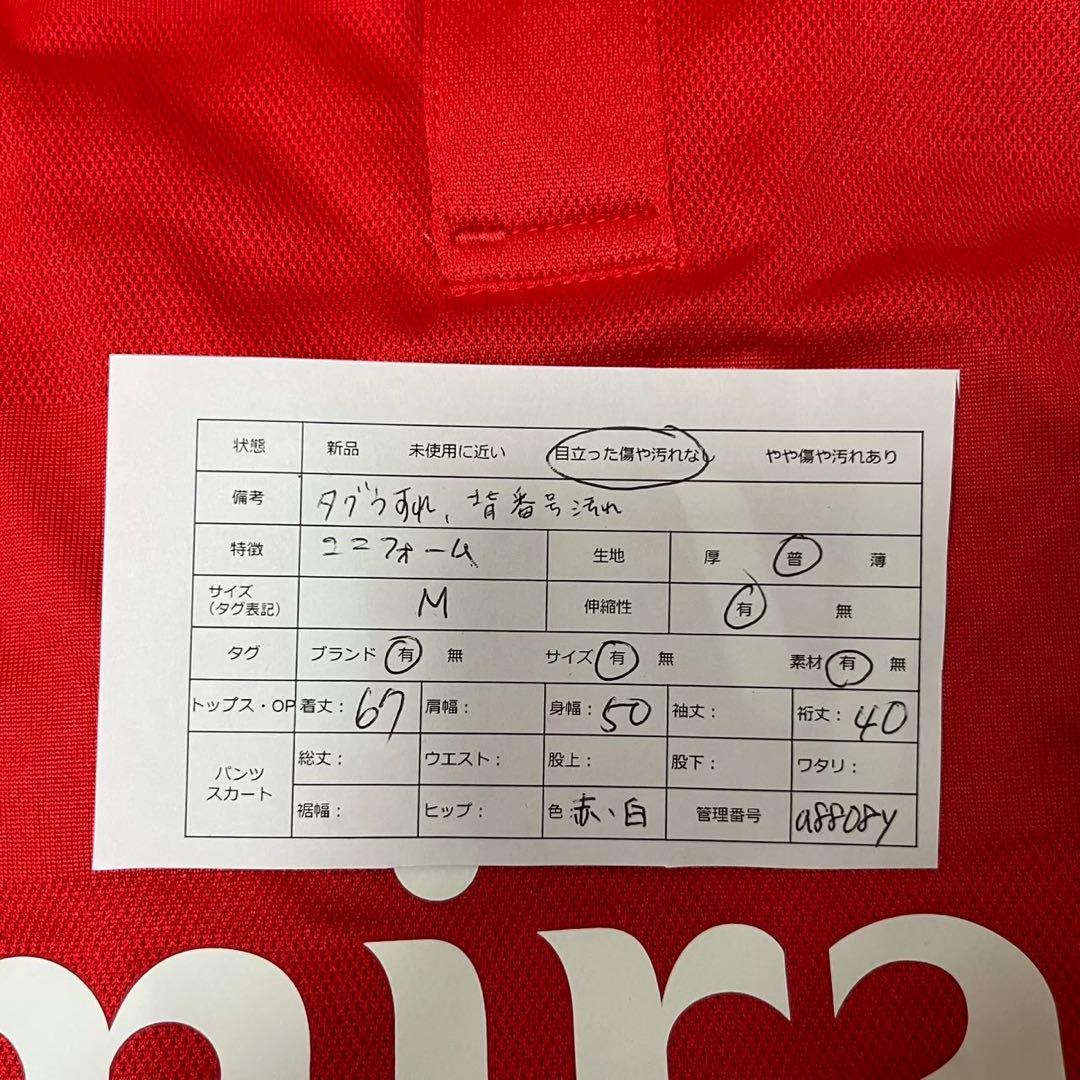 状態 新品 未使用に近い 目立った傷や汚れなし やや傷や汚れあり
備考 タグうすれ、背番号汚れ
特徴 ユニフォーム 生地 厚 普 薄
サイズ
(タグ表記) M 伸縮性 有 無
タグ ブランド 有 無 サイズ 有 無 素材 有 無
トップス・OP 着丈：67 肩幅： 身幅：50 袖丈： 裄丈：40
パンツ
スカート 総丈： ウエスト： 股上： 股下： ワタリ：
裾幅： ヒップ： 色：赤、白 管理番号 a8808y
mira